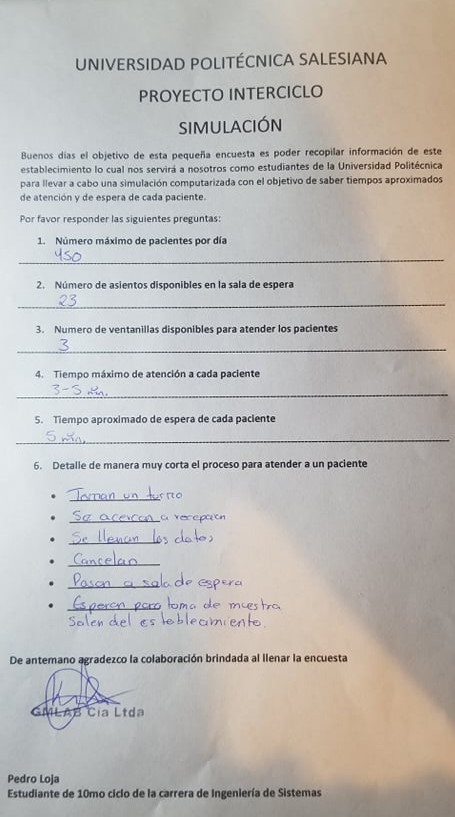 UNIVERSIDAD POLITÉCNICA SALESIANA
PROYECTO INTERCICLO
SIMULACIÓN
Buenos dias el objetivo de esta pequeña encuesta es poder recopilar información de este
establecimiento lo cual nos servirá a nosotros como estudiantes de la Universidad Politécnica
para llevar a cabo una simulación computarizada con el objetivo de saber tiempos aproximados
de atención y de espera de cada paciente.
Por favor responder las siguientes preguntas:
1. Número máximo de pacientes por día
450
2. Número de asientos disponibles en la sala de espera
23
3. Numero de ventanillas disponibles para atender los pacientes
3
4. Tiempo máximo de atención a cada paciente
3-5 min.
5. Tiempo aproximado de espera de cada paciente
5 min.
6. Detalle de manera muy corta el proceso para atender a un paciente
• Toman un turno
• Se acercan a recepcion
• Se llenan los datos
• Cancelan
• Pasan a sala de espera
• Esperan para toma de muestra
Salen del establecimiento.
De antemano agradezco la colaboración brindada al llenar la encuesta
GMLAB Cia Ltda
Pedro Loja
Estudiante de 10mo ciclo de la carrera de Ingeniería de Sistemas